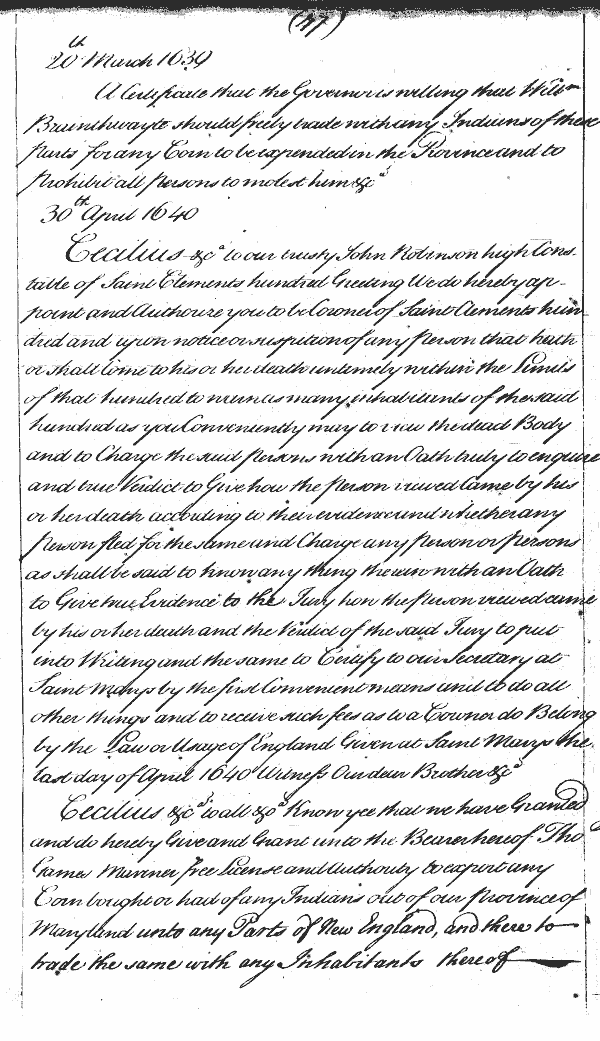 (47)
20th March 1639
A Certificate that the Governor is willing that Willm
Brainthwayte should freely trade with any Indians of these
parts for any Corn to be expended in the Province and to
prohibit all persons to molest him &ca
30th April 1640
Cecilius &ca to our trusty John Robinson high Cons-
table of Saint Clements hundred Greeting We do hereby ap-
point and Authorize you to be Coroner of Saint Clements hun-
dred and upon notice or suspition of any person that hath
or shall Come to his or her death untimely within the Limits
of that hundred to warn as many inhabitants of the said
hundred as you Conveniently may to view the dead Body
and to Charge the said persons with an Oath truly to enquire
and true Verdict to Give how the person viewed Came by his
or her death according to their evidence and whether any
person fled for the same and Charge any person or persons
as shall be said to know any thing therein with an Oath
to Give true Evidence to the Jury how the person viewed came
by his or her death and the Verdict of the said Jury to put
into Writing and the same to Certify to our Secretary at
Saint Marys by the first Convenient means and to do all
other things and to receive such fees as to a Cowner do Belong
by the Law or Usage of England Given at Saint Marys the
last day of April 1640 Witness Our dear Brother &ca
Cecilius &ca to all &ca Know yee that we have Granted
and do hereby Give and Grant unto the Bearer hereof Tho
Games Marriner free License and Authority to export any
Corn bought or had of any Indians out of our province of
Maryland unto any Parts of New England, and there to
trade the same with any Inhabitants thereof